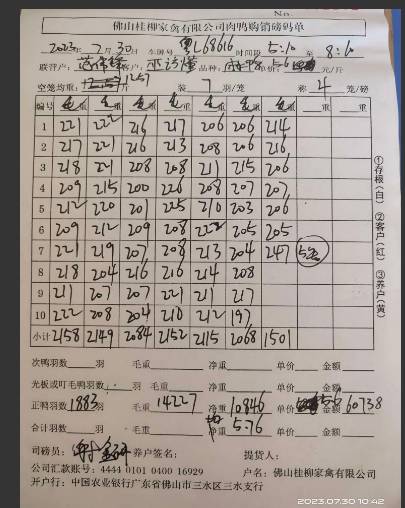 No.
佛山桂柳家禽有限公司肉鸭购销磅码单
2023年7月30日 车牌号 粤L68616 时间段 5:10 至 8:10
联营户: 客户: 品种: 单价: 5.6 元/斤
空笼均重: 1257 装 7 羽/笼 称 4 笼/磅
编号 毛重 毛重 毛重 毛重 毛重 毛重 毛重 重 重
1 221 222 216 217 206 206 214
2 217 221 216 213 208 206 216
3 218 221 208 208 211 215 206
4 209 215 200 226 208 207 207
5 212 220 201 225 210 203 206
6 209 212 209 208 222 205 205
7 221 219 207 208 213 204 247
8 218 204 216 216 214 208
9 211 207 207 221 211 217
10 222 208 204 210 212 197
小计 2158 2149 2084 2152 2115 2068 1501
次鸭羽数 羽 毛重 净重 单价 金额
光板或叮毛鸭羽数 羽 毛重 净重 单价 金额
正鸭羽数 1883 羽 毛重 14227 净重 10846 单价 5.6 金额 60738
合计羽数 羽 均 净重 5.76 单价 金额
司磅员: 养户签名: 提货人:
公司汇款账号: 4444 0101 0400 16929 户名: 佛山桂柳家禽有限公司
开户行: 中国农业银行广东省佛山市三水区三水支行
①存根(白) ②客户(红) ③养户(黄)
2023.07.30 10:42